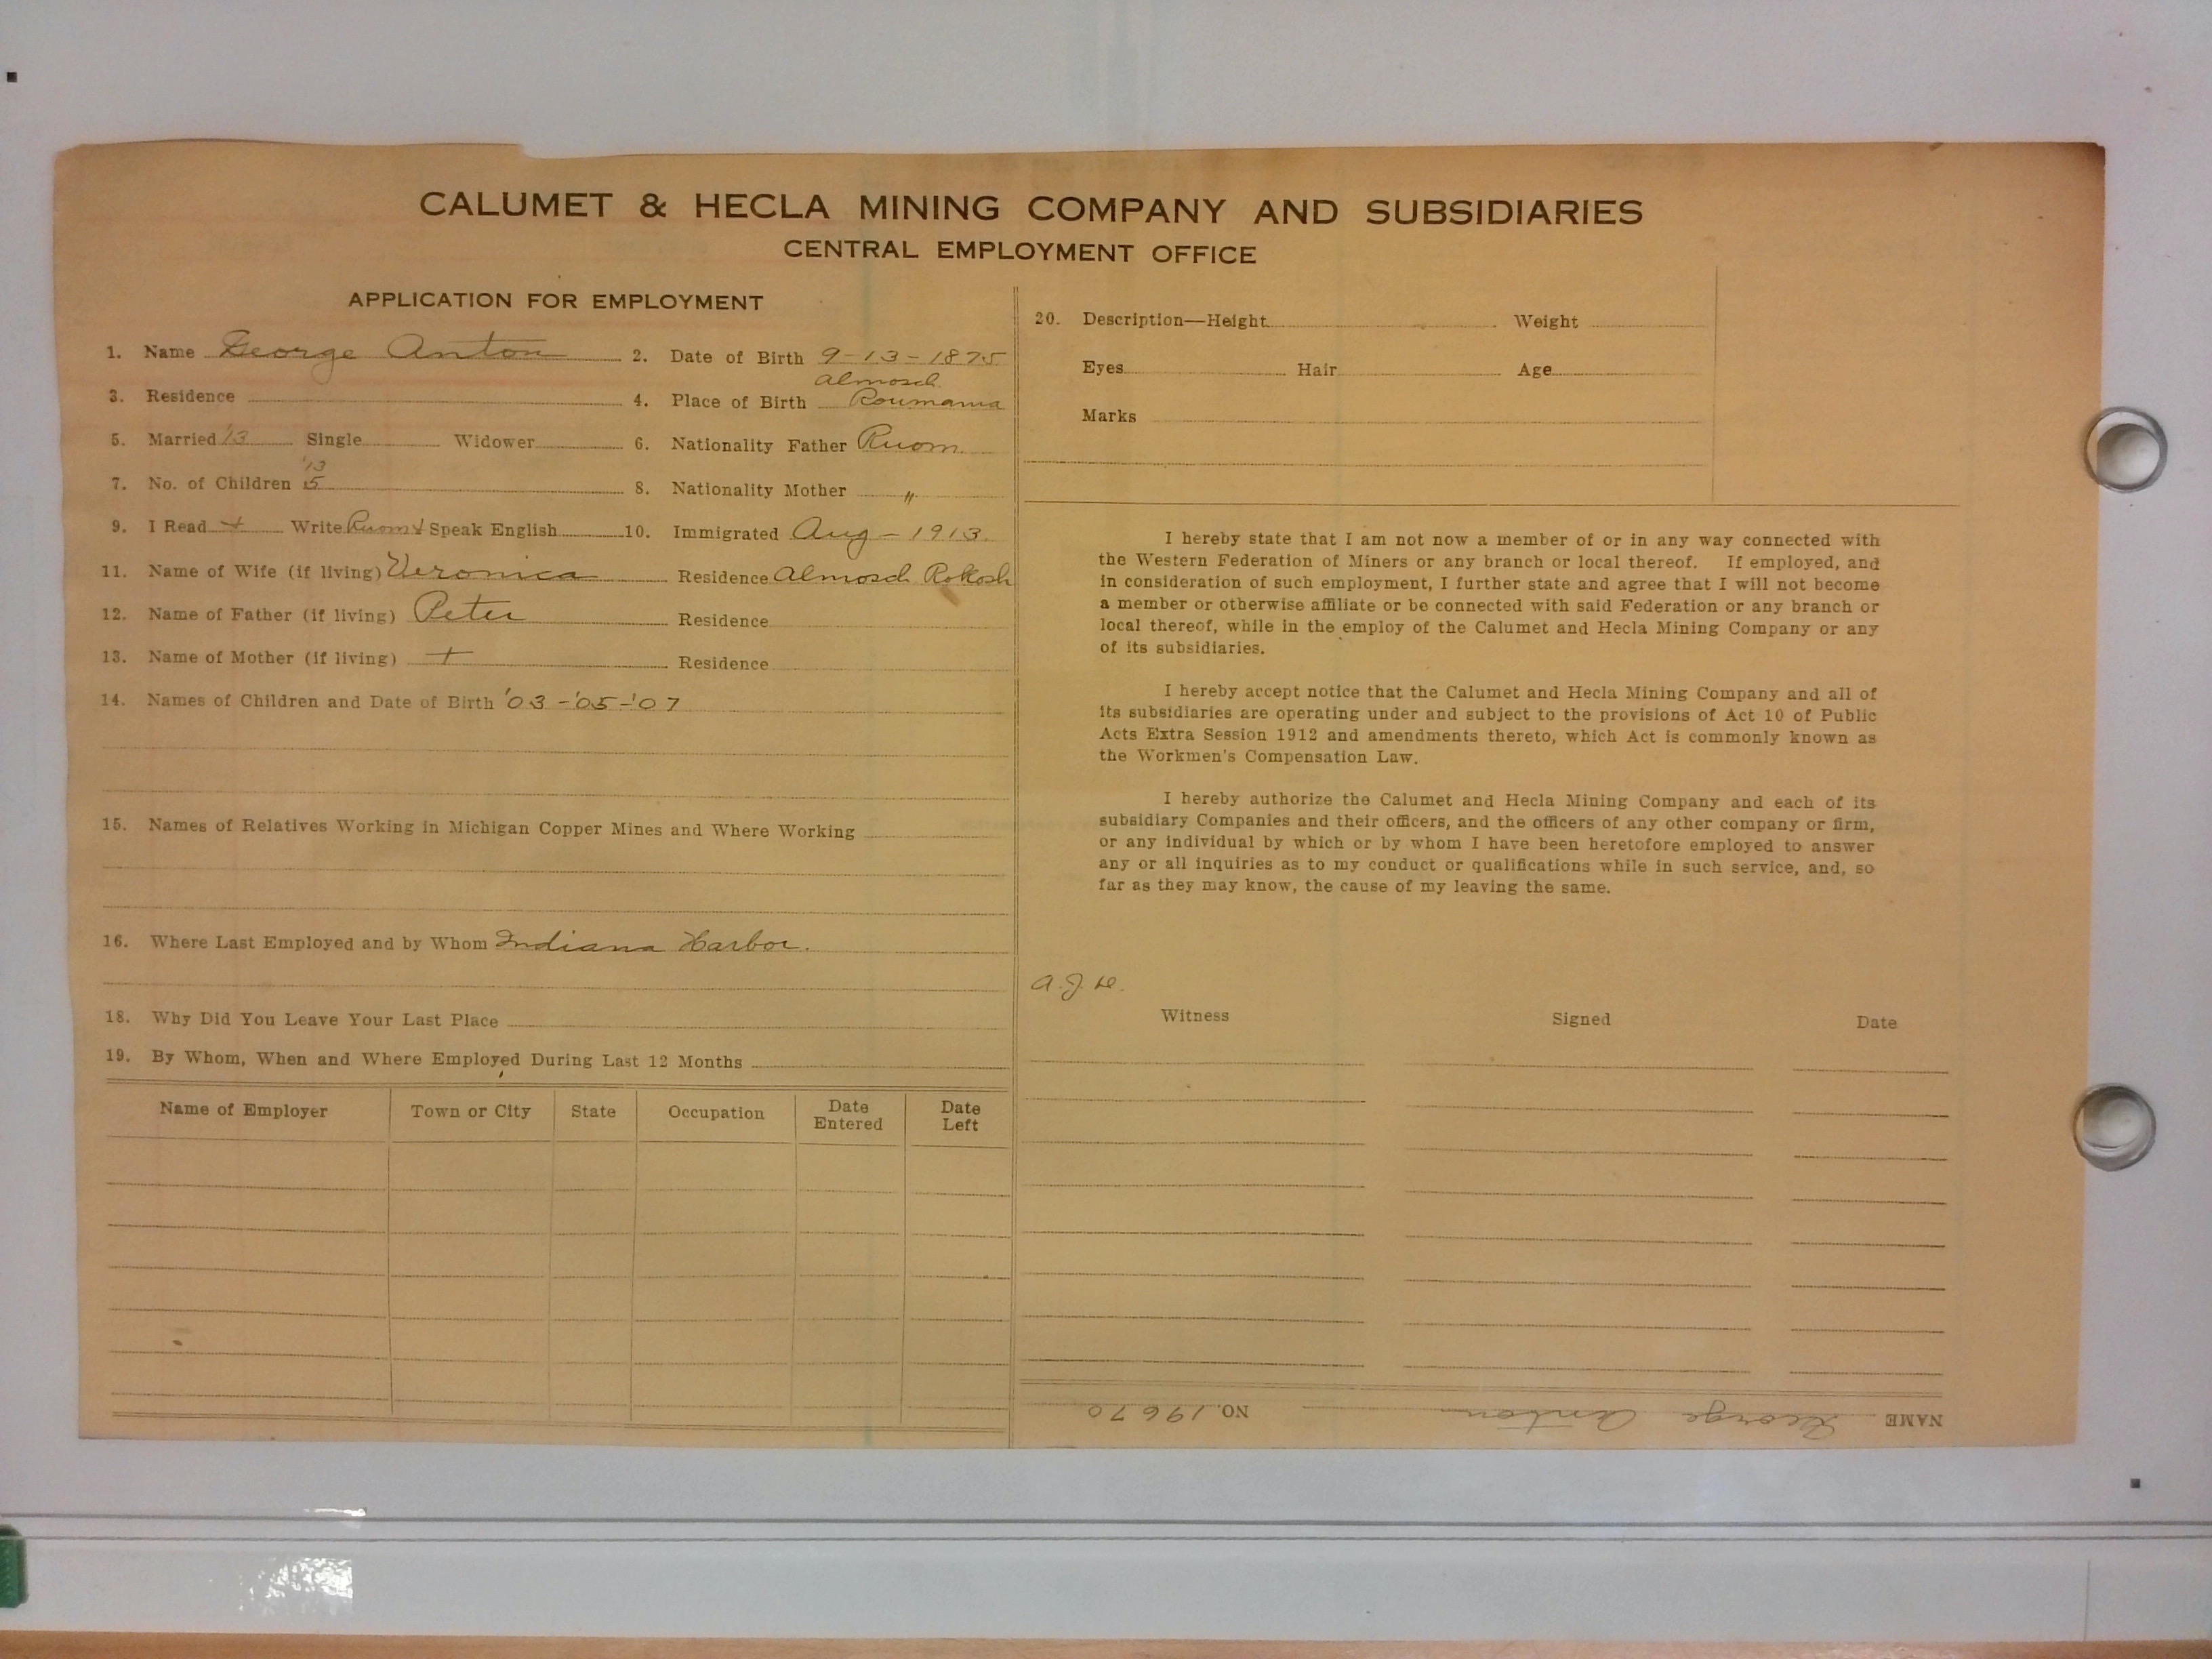 CALUMET & HECLA MINING COMPANY AND SUBSIDIARIES
CENTRAL EMPLOYMENT OFFICE
APPLICATION FOR EMPLOYMENT
1. Name George Anton 2. Date of Birth 9-13-1875
Almosch
3. Residence 4. Place of Birth Roumania
5. Married '13 Single Widower 6. Nationality Father Ruom.
'13
7. No. of Children 5 8. Nationality Mother "
9. I Read + Write Ruom + Speak English 10. Immigrated Aug - 1913.
11. Name of Wife (if living) Veronica Residence Almosch Rokosh
12. Name of Father (if living) Peter Residence
13. Name of Mother (if living) + Residence
14. Names of Children and Date of Birth '03 -'05 -'07
15. Names of Relatives Working in Michigan Copper Mines and Where Working
16. Where Last Employed and by Whom Indiana Harbor.
18. Why Did You Leave Your Last Place
19. By Whom, When and Where Employed During Last 12 Months
Name of Employer Town or City State Occupation Date Entered Date Left
20. Description—Height Weight
Eyes Hair Age
Marks
I hereby state that I am not now a member of or in any way connected with
the Western Federation of Miners or any branch or local thereof. If employed, and
in consideration of such employment, I further state and agree that I will not become
a member or otherwise affiliate or be connected with said Federation or any branch or
local thereof, while in the employ of the Calumet and Hecla Mining Company or any
of its subsidiaries.
I hereby accept notice that the Calumet and Hecla Mining Company and all of
its subsidiaries are operating under and subject to the provisions of Act 10 of Public
Acts Extra Session 1912 and amendments thereto, which Act is commonly known as
the Workmen's Compensation Law.
I hereby authorize the Calumet and Hecla Mining Company and each of its
subsidiary Companies and their officers, and the officers of any other company or firm,
or any individual by which or by whom I have been heretofore employed to answer
any or all inquiries as to my conduct or qualifications while in such service, and, so
far as they may know, the cause of my leaving the same.
Witness Signed Date
NAME George Anton NO. 19670